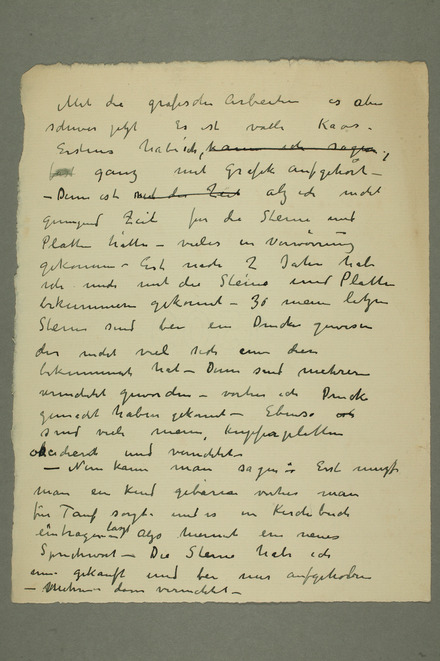 Mit die grafischen Arbeiten is aber
schwer jetzt Es ist volle Kaos -
Erstens hab ich, kann ich sagen,
fast ganz mit Grafik aufgehört -
- Dann ist mit der Zeit als ich nicht
genugend Zeit für die Steine und
Platten hatte - vieles in Verwirrung
gekommen - Erst nach 2 Jahre hab
ich mich mit die Steine und Platten
bekummern gekonnt - 30 meine letzten
Steine sind bei ein Drucker gewesen
der nicht viel sich um dem
bekummert hat - Dann sind mehrere
vernichtet geworden - vorher ich Druck
gemacht haben gekonnt - Ebenso
sind viele meine Kupferplatten
oksidiert und vernichtet
- Nun kann man sagen Erst muss
man ein Kind gebären vorher man
für Tauf sorgt und es in Kirchebuch
eintragen lasst Also hiermit ein neues
Sprichwort - Die Steine hab ich
nun gekauft und bei mir aufgehoben
- Mehrere dann vernichtet -